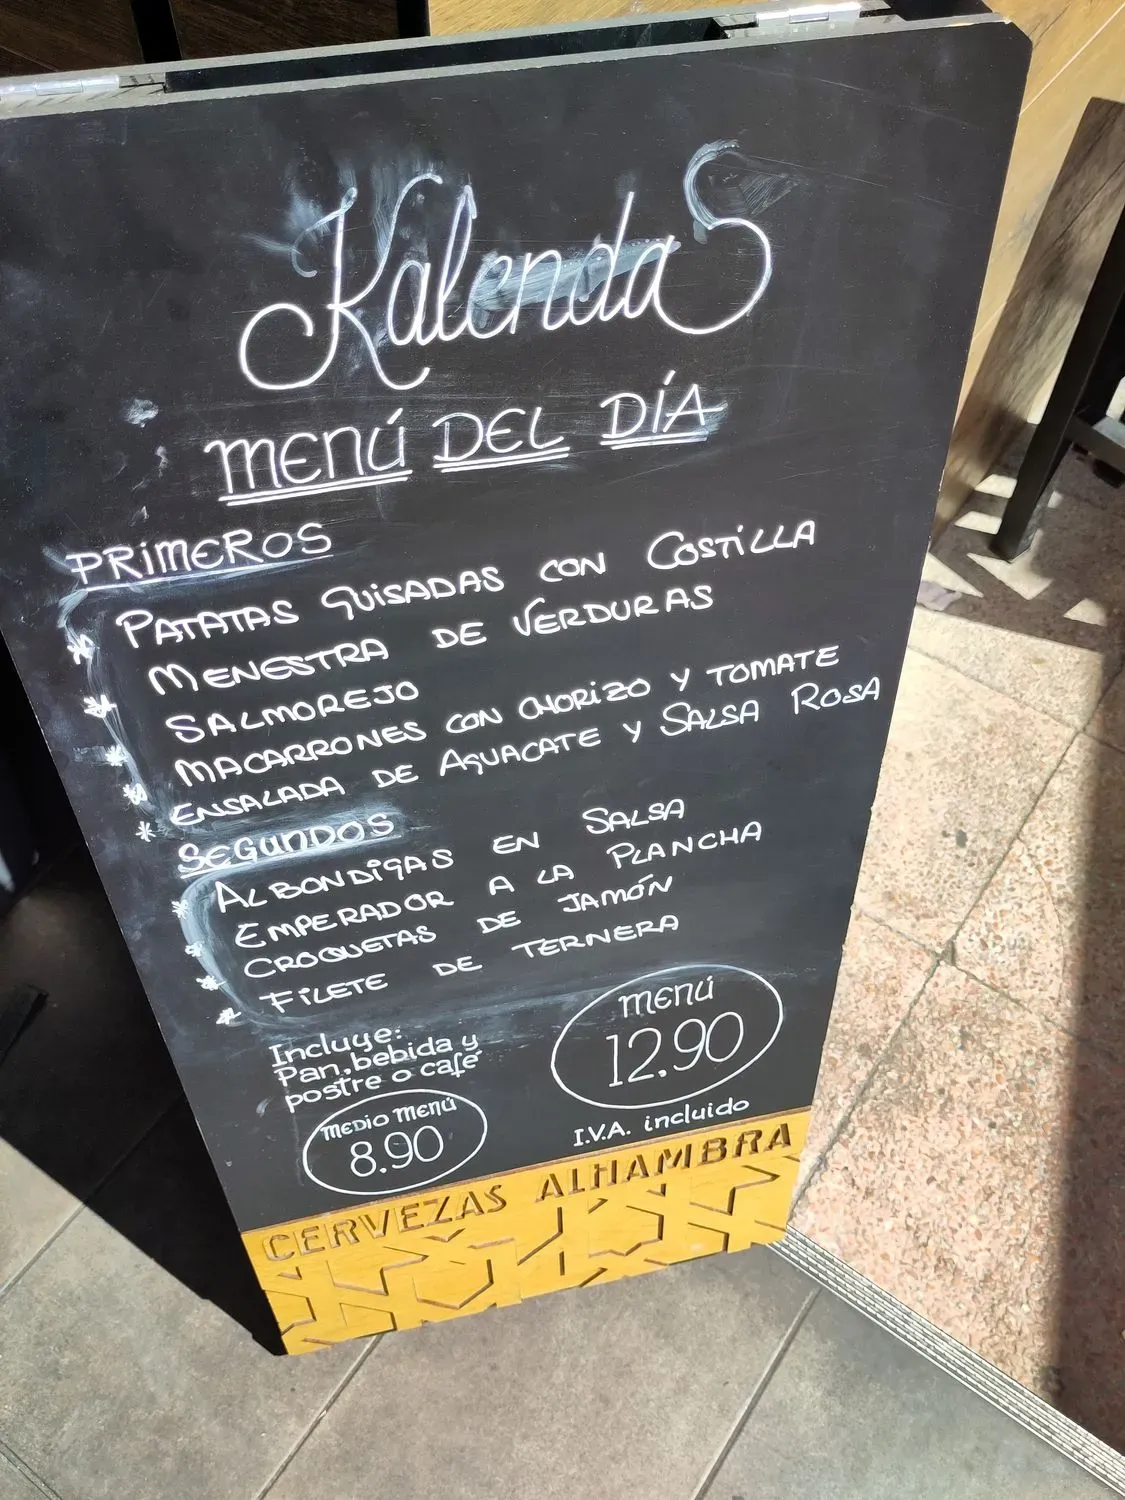 Kalendas
MENÚ DEL DÍA
PRIMEROS
* PATATAS GUISADAS CON COSTILLA
* MENESTRA DE VERDURAS
* SALMOREJO
* MACARRONES CON CHORIZO Y TOMATE
* ENSALADA DE AGUACATE Y SALSA ROSA
SEGUNDOS
* ALBONDIGAS EN SALSA
* EMPERADOR A LA PLANCHA
* CROQUETAS DE JAMÓN
* FILETE DE TERNERA
Incluye:
Pan, bebida y
postre o café
MENÚ
12.90
I.V.A. incluido
MEDIO MENÚ
8.90
CERVEZAS ALHAMBRA